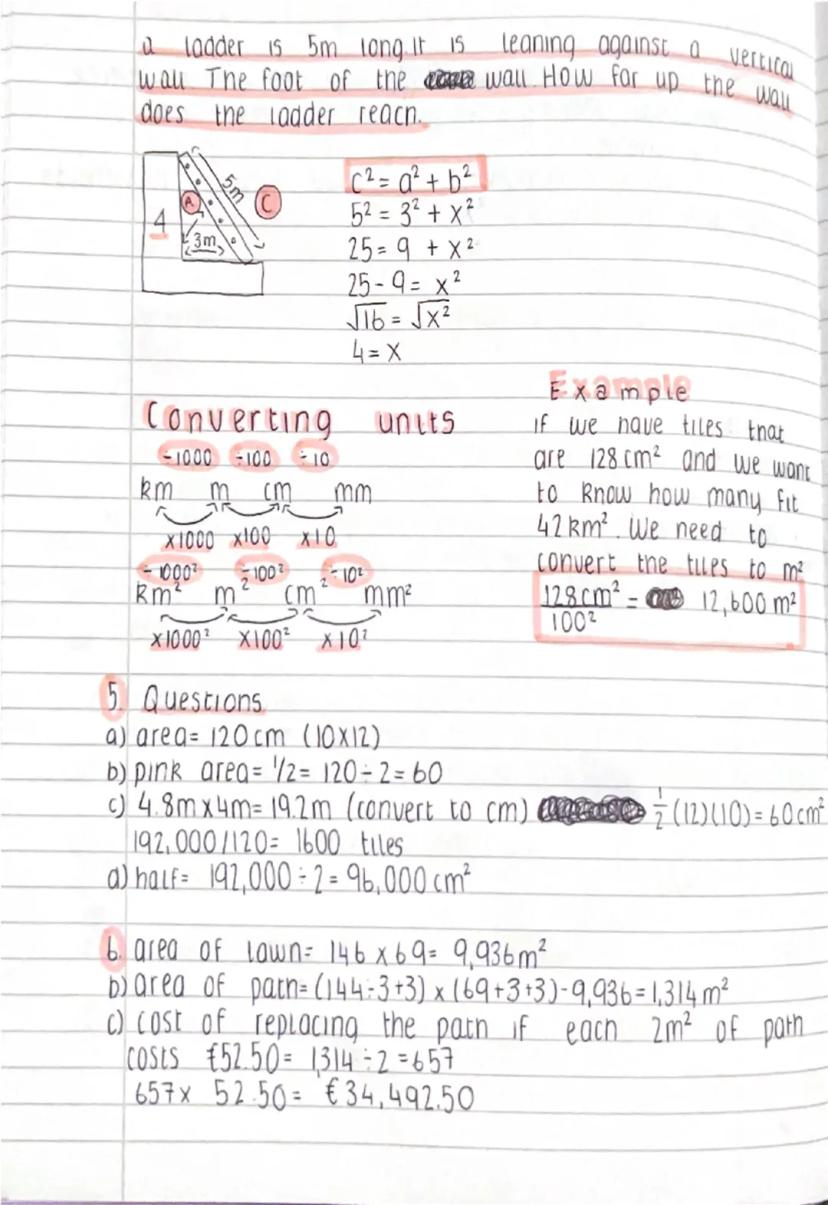 a ladder is 5m long. it is leaning against a vertical
wall The foot of the wall. How far up the wall
does the ladder reach.
5m
A
C
4
3m
c² = a² + b²
5² = 3² + x²
25 = 9 + x²
25 - 9 = x²
√16 = √x²
4 = x
Converting units
÷1000 ÷100 ÷10
km m cm mm
x1000 x100 x10
÷1000² ÷100² ÷10²
km² m² cm² mm²
x1000² x100² x10²
Example
if we have tiles that
are 128 cm² and we want
to know how many fit
42km². We need to
convert the tiles to m²
128cm²/100² = 12,600 m²
5. Questions
a) area = 120cm (10x12)
b) pink area = 1/2 = 120 ÷ 2 = 60
c) 4.8m x 4m = 19.2m (convert to cm) 1/2 (12)(10) = 60cm²
192,000/120 = 1600 tiles
d) half = 192,000 ÷ 2 = 96,000 cm²
6. area of lawn = 146 x 69 = 9,936m²
b) area of path = (144÷3+3) x (69+3+3) - 9,936 = 1,314 m²
c) cost of replacing the path if each 2m² of path
costs €52.50 = 1,314 ÷ 2 = 657
657 x 52.50 = €34,492.50